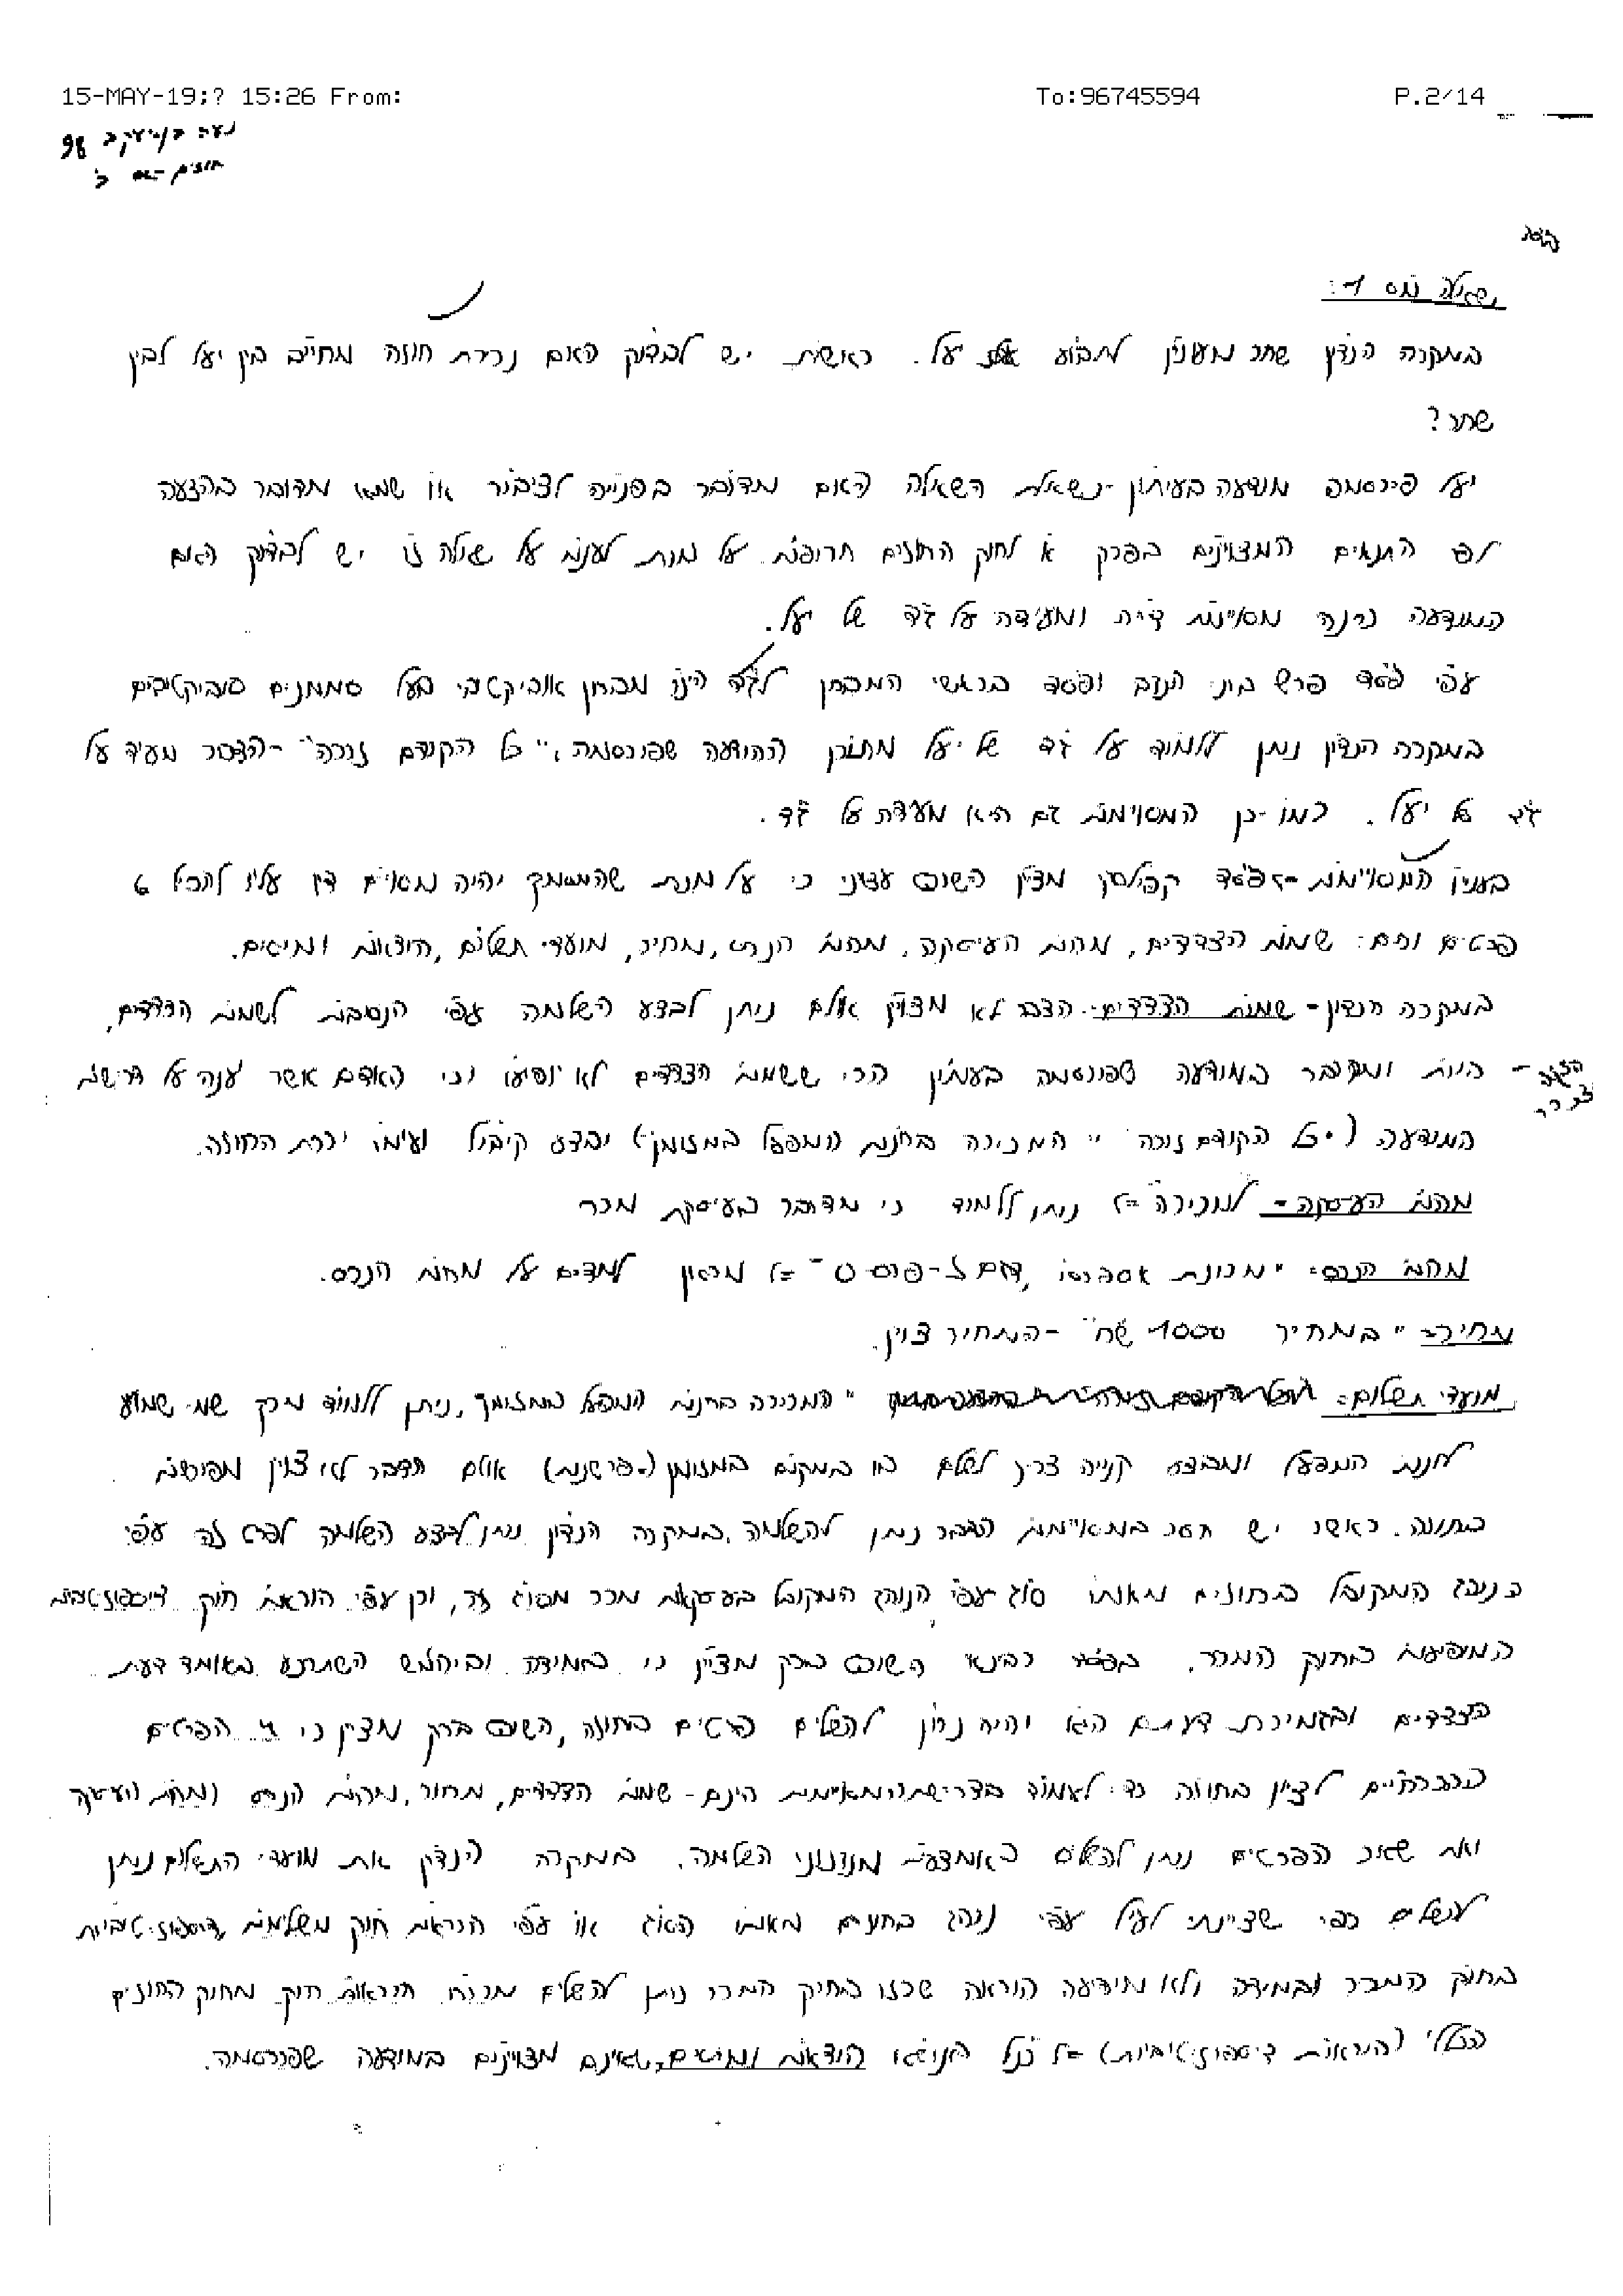 15-MAY-19;? 15:26 From: To:96745594 P.2/14
98
שאלה מס 1:
במקרה הנדון שחר מעונין לתבוע את יעל. ראשית יש לבדוק האם נכרת חוזה מחייב בין יעל לבין
שחר?
יעל פירסמה מודעה בעיתון - נשאלת השאלה האם מדובר בפנייה לציבור או שמא מדובר בהצעה
לפי התנאים המצויינים בפרק א לחוק החוזים תרופות על מנת לענות על שאלה זו יש לבדוק האם
המודעה הינה מסויימת דיה ומעידה על גמ"ד של יעל.
עפ"י פס"ד פרץ בוני הנגב ופס"ד בראשי המבחן לגמ"ד הינו מבחן אובייקטיבי בעל סממנים סובייקטיבים
במקרה הנדון ניתן ללמוד על גמ"ד של יעל מתוכן ההודעה שפורסמה, "כל הקודם זוכה" - הדבר מעיד על
גמ"ד של יעל. כמו-כן המסויימות גם היא מעידה על גמ"ד.
בעניין המסויימות - בפס"ד קפולסקי מציין השופט עציוני כי על מנת שהמסמך יהיה מסויים דיו עליו להכיל 6
פרטים והם: שמות הצדדים, מהות העיסקה, מהות הנכס, מחיר, מועדי תשלום, הוצאות ומיסים.
במקרה הנדון - שמות הצדדים - הדבר לא מצויין אולם ניתן לבצע השלמה עפ"י הנסיבות לשמות הצדדים,
היות ומדובר במודעה שפורסמה בעיתון הרי ששמות הצדדים לא יופיעו וכי האדם אשר יענה על דרישות
המודעה ("כל הקודם זוכה" "המכירה בחנות המפעל במזומן") יבצע קיבול ועימו יכרת החוזה.
מהות העיסקה - "למכירה" => ניתן ללמוד כי מדובר בעיסקת מכר
מהות הנכס - "מכונת אספרסו, דגם - 0" => מכאן למדים על מהות הנכס.
מחיר - "במחיר 1000 ש"ח" - המחיר צוין.
מועדי תשלום - "המכירה בחנות המפעל במזומן", ניתן ללמוד מכך שמי שמגיע
לחנות המפעל ומבצע קנייה צריך לשלם בו במקום במזומן (פרשנות) אולם הדבר לא צוין מפורשות
בחוזה. כאשר יש חסר במסויימות הדבר ניתן להשלמה, במקרה הנדון ניתן לבצע השלמה לפרט זה עפ"י
הנוהג המקובל בחוזים מאותו סוג עפ"י הנוהג המקובל בעסקאות מכר מסוג זה, וכן עפ"י הוראות חוק דיספוזיטיביות
המופיעות בחוק המכר. בפס"ד רבינאי השופט ברק מציין כי במידה וביהמ"ש השתכנע באומד דעת
הצדדים ובגמירת דעתם הוא יהיה נכון להשלים פרטים בחוזה, השופט ברק מציין כי הפרטים
ההכרחיים לציון בחוזה כדי לעמוד בדרישת המסויימות הינם - שמות הצדדים, מחיר, מהות הנכס ומהות העיסקה
ואת שאר הפרטים ניתן להשלים באמצעות מנגנוני השלמה. במקרה הנדון את מועדי התשלום ניתן
להשלים כפי שציינתי לעיל עפ"י נוהג בחוזים מאותו הסוג או עפ"י הוראות חוק משלימות דיספוזיטיביות
בחוק המכר ובמידה ולא מופיעה הוראה שכזו בחוק המכר ניתן להשלים מכח הוראות חוק מחוק החוזים
הכללי (הוראות דיספוזיטיביות) => כנ"ל הנושא הוצאות ומיסים, שאינם מצויינים במודעה שפורסמה.